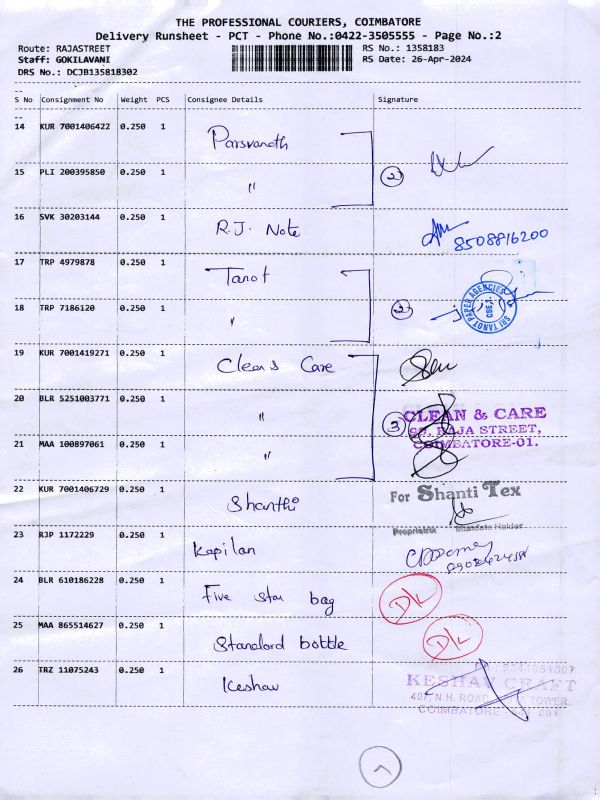 THE PROFESSIONAL COURIERS, COIMBATORE
Delivery Runsheet - PCT - Phone No.:0422-3505555 - Page No.:2
Route: RAJASTREET RS No.: 1358183
Staff: GOKILAVANI RS Date: 26-Apr-2024
DRS No.: DCJB135818302
S No Consignment No Weight PCS Consignee Details Signature
14 KUR 7001406422 0.250 1 Parsvanath
15 PLI 200395850 0.250 1 " 2
16 SVK 30203144 0.250 1 R.J. Note 8508816200
17 TRP 4979878 0.250 1 Tanot
18 TRP 7186120 0.250 1 " 2 SRI TANOT PAPER AGENCIES CBE.1.
19 KUR 7001419271 0.250 1 Clean & Care
20 BLR 5251003771 0.250 1 " 3 CLEAN & CARE
RAJA STREET,
21 MAA 100897061 0.250 1 " COIMBATORE-01.
22 KUR 7001406729 0.250 1 Shanthi For Shanti Tex
Proprietrix Mandate Holder
23 RJP 1172229 0.250 1 Kapilan
24 BLR 610186228 0.250 1 Five star bag D/L
25 MAA 865514627 0.250 1 Standord bottle D/L
26 TRZ 11075243 0.250 1 Keshav KESHAV CRAFT
407, N.H. ROAD, TOWER,
COIMBATORE 001